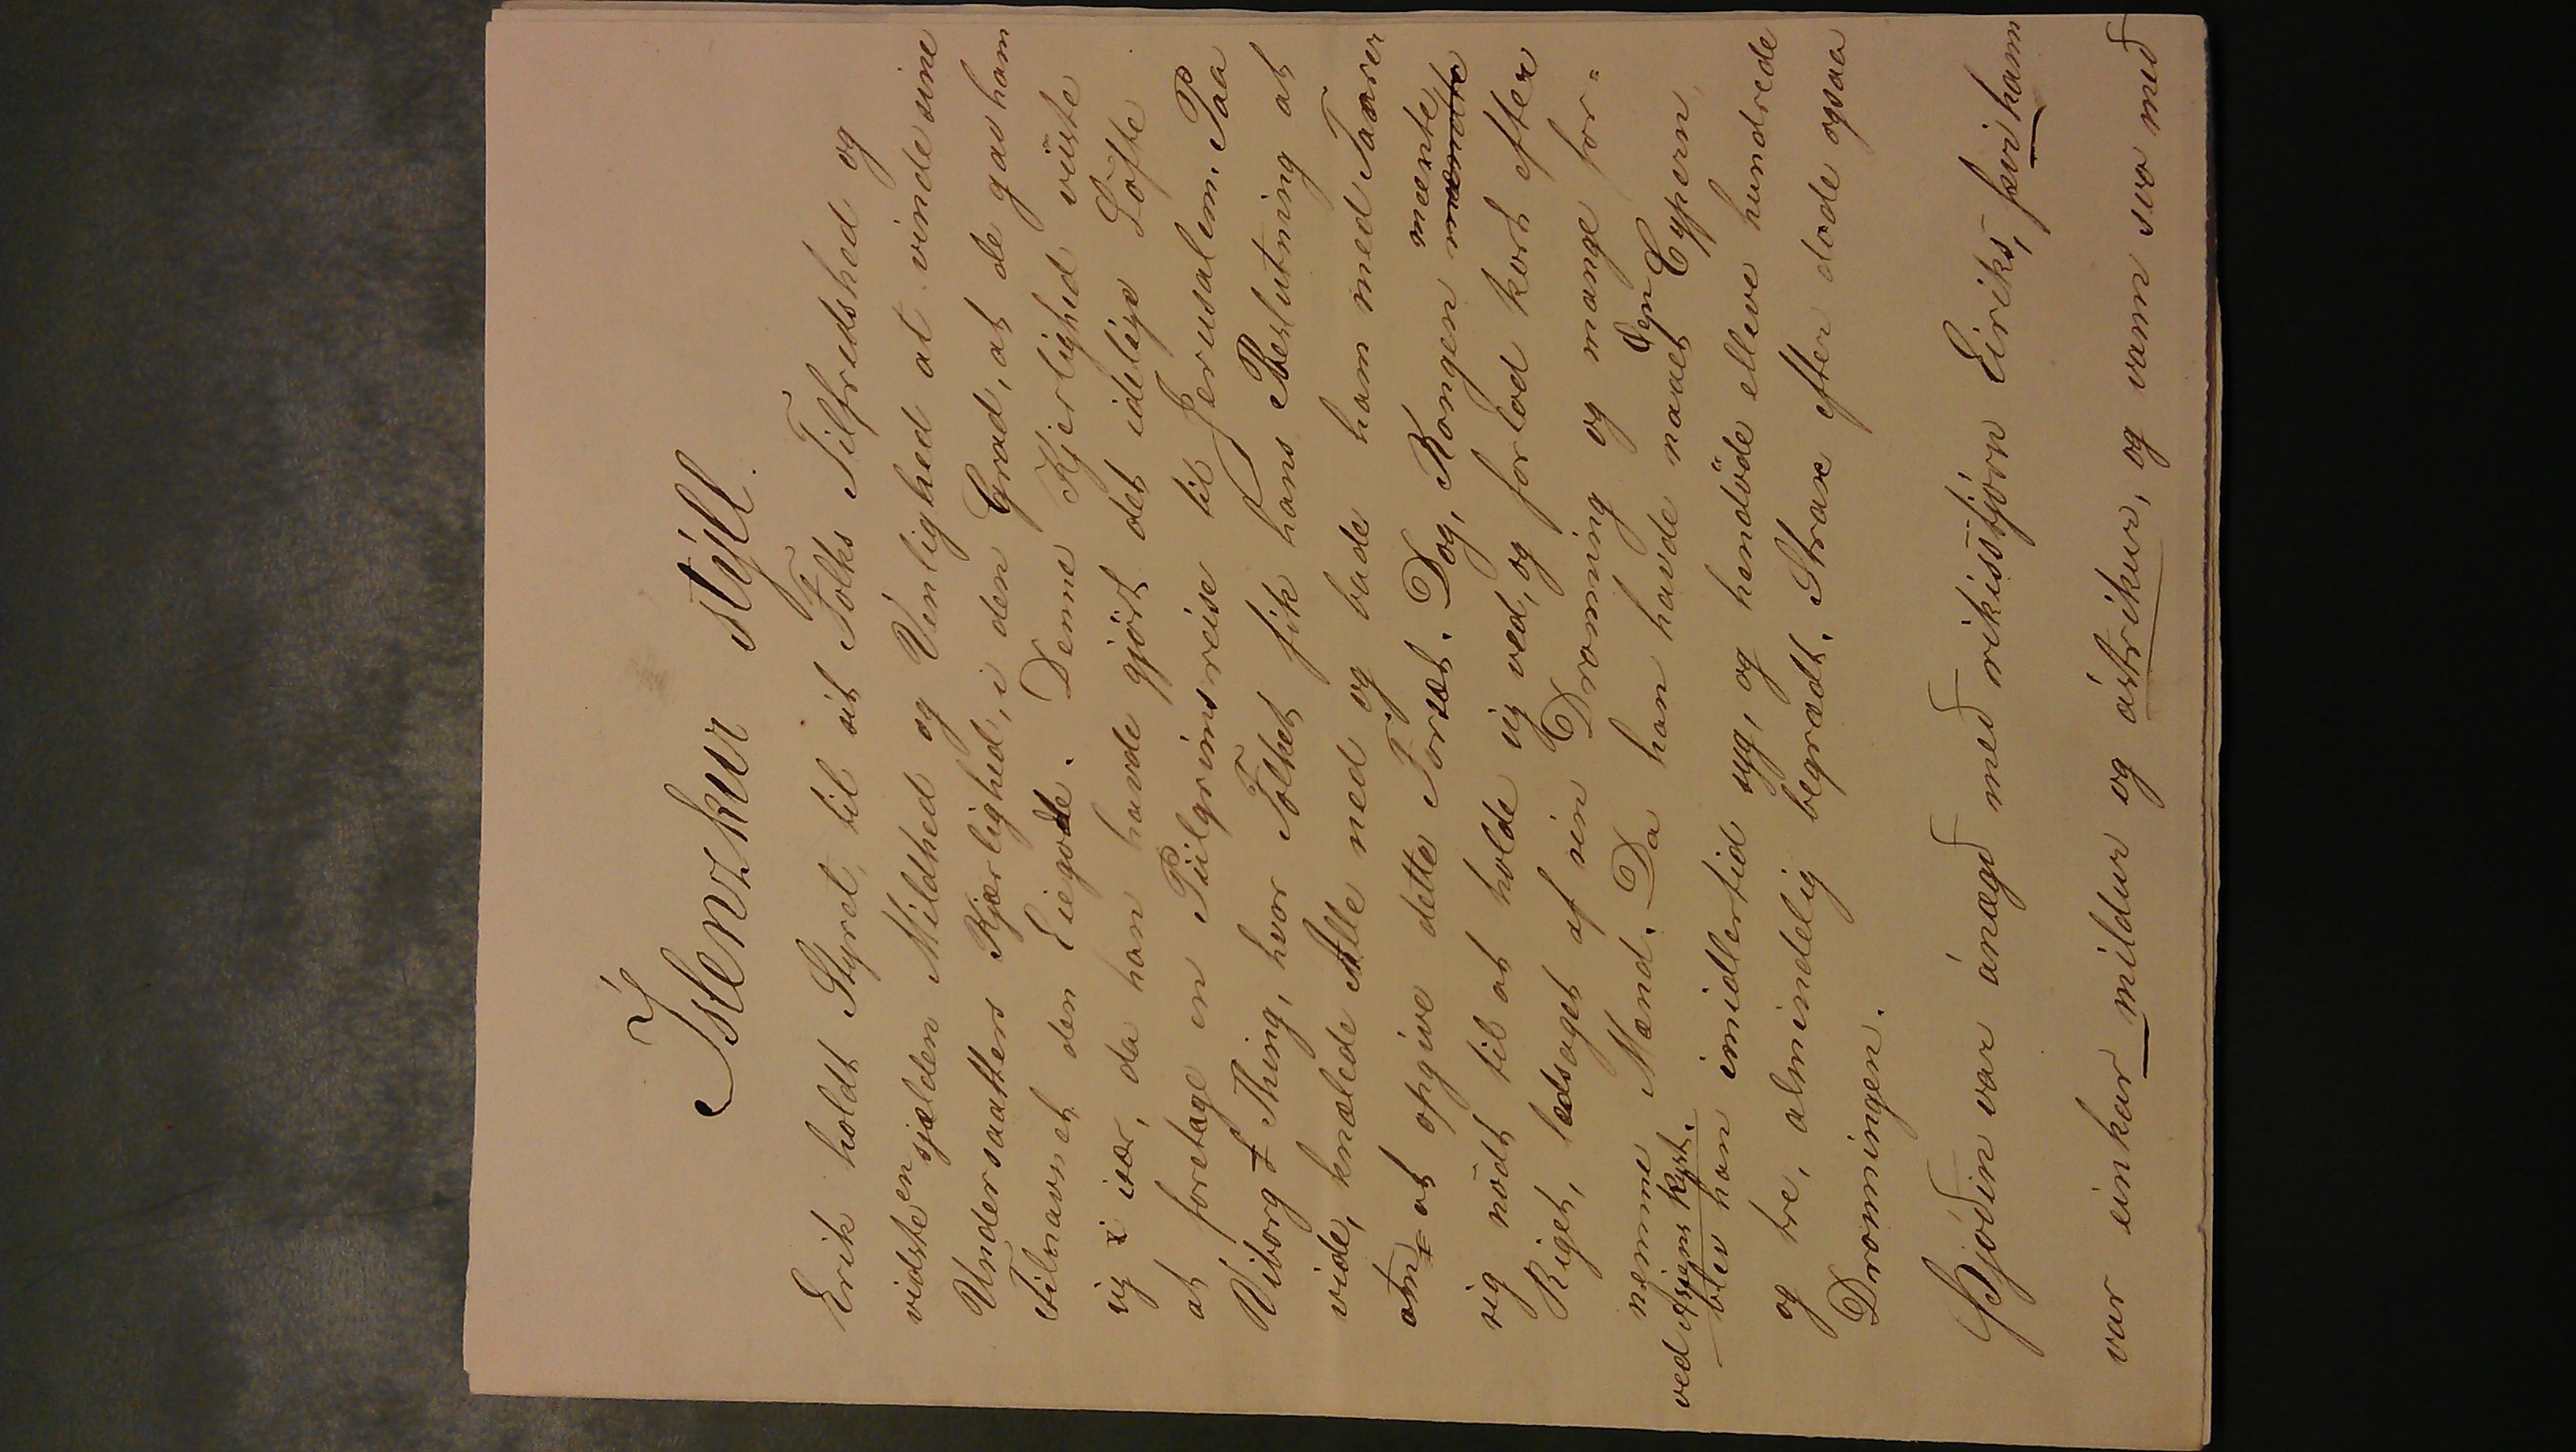 Íslenzkur stýll.
Erik holdt Styret til sit Folks Tilfredshed og
vidste en sjælden Mildhed og Venlighed at vinde sine
Undersaatters Kjærlighed, i den Grad, at de gav ham
Tilnavnet den Eiegode. Denne Kjerlighed viiste
sig i især, da han havde gjört det idelige Löfte
at foretage en Piilgrimsreise til Jerusalem. Paa
Viborg Thing, hvor Folket fik hans Beslutning at
vide, knælede Alle ned og bade ham med Taarer
om at opgive dette Forsæt. Dog, Kongen mændte meente
sig nödt til at holde sig ved, og forlod kort efter
Riget, ledsaget af sin Dronning og mange for=
nemme Mænd. Da han havde naaet Øen Cypern,
ved Asiens Kyst.
blev han imidlertid syg, og hendöde elleve hundrede
og tre, almindelig begrædt. Strax efter döde ogsaa
Dronningen.
Þjóðin var ánægð með rikisstjórn Eiriks, þvi hann
var einkar mildur og ástrikur, og vann svo með